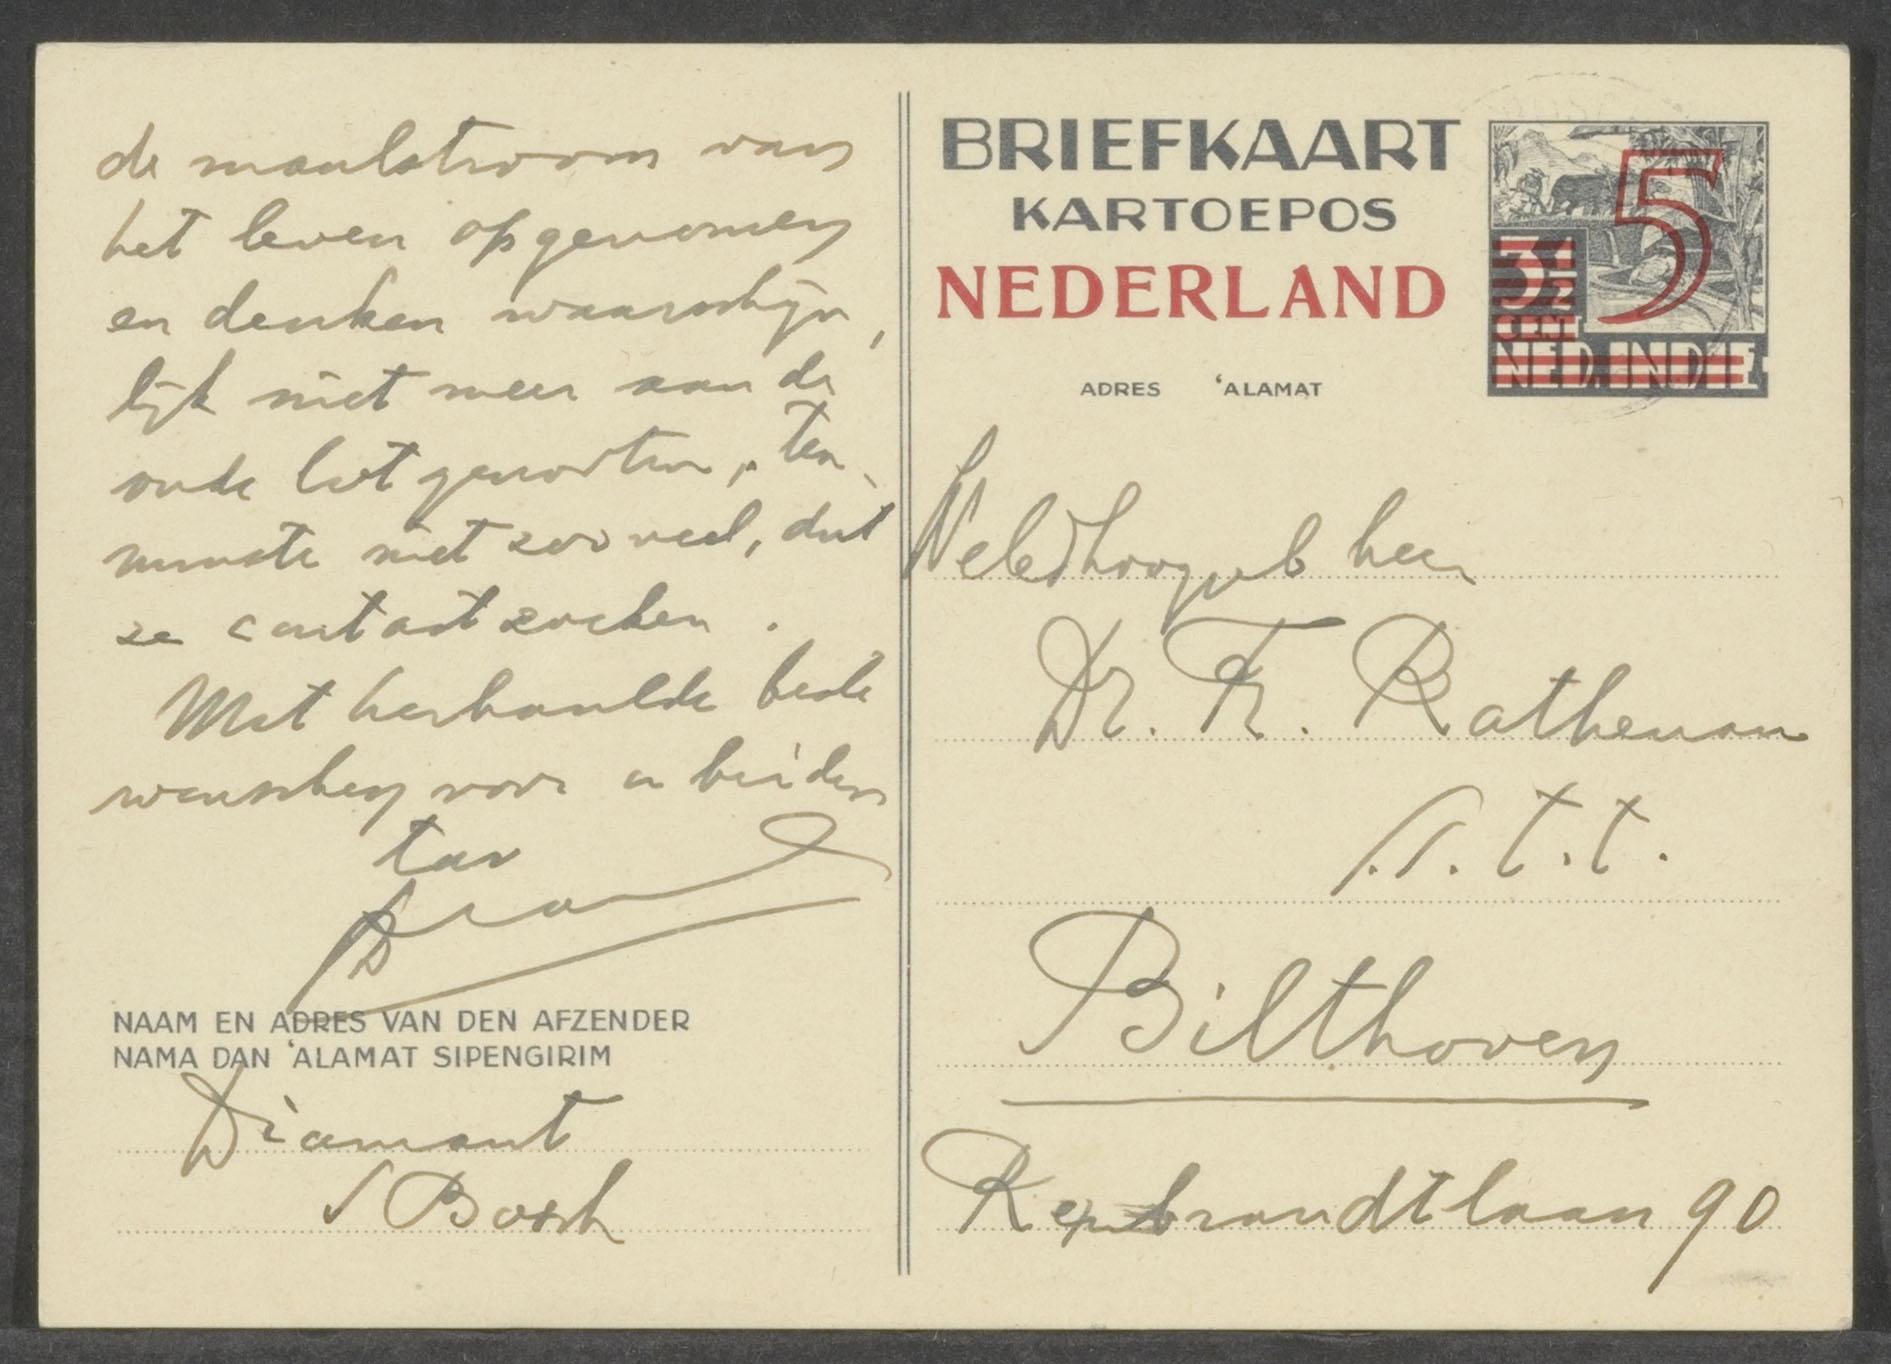 de maalstroom van
het leven opgenomen
en denken waarschijn,
lijk niet meer aan de
oude lotgenooten, ten
minste niet zooveel, dat
ze contact zoeken.
Met herhaalde beste
wenschen voor u beiden
tav
NAAM EN ADRES VAN DEN AFZENDER
NAMA DAN 'ALAMAT SIPENGIRIM
Diamant
Bosch
BRIEFKAART
KARTOEPOS
NEDERLAND
5
3½
CENT
NED. INDIE
ADRES 'ALAMAT
WelEdhooggeb heer
Dr. Fr. Rathenau
s.t.t.
Bilthoven
Rembrandtlaan 90